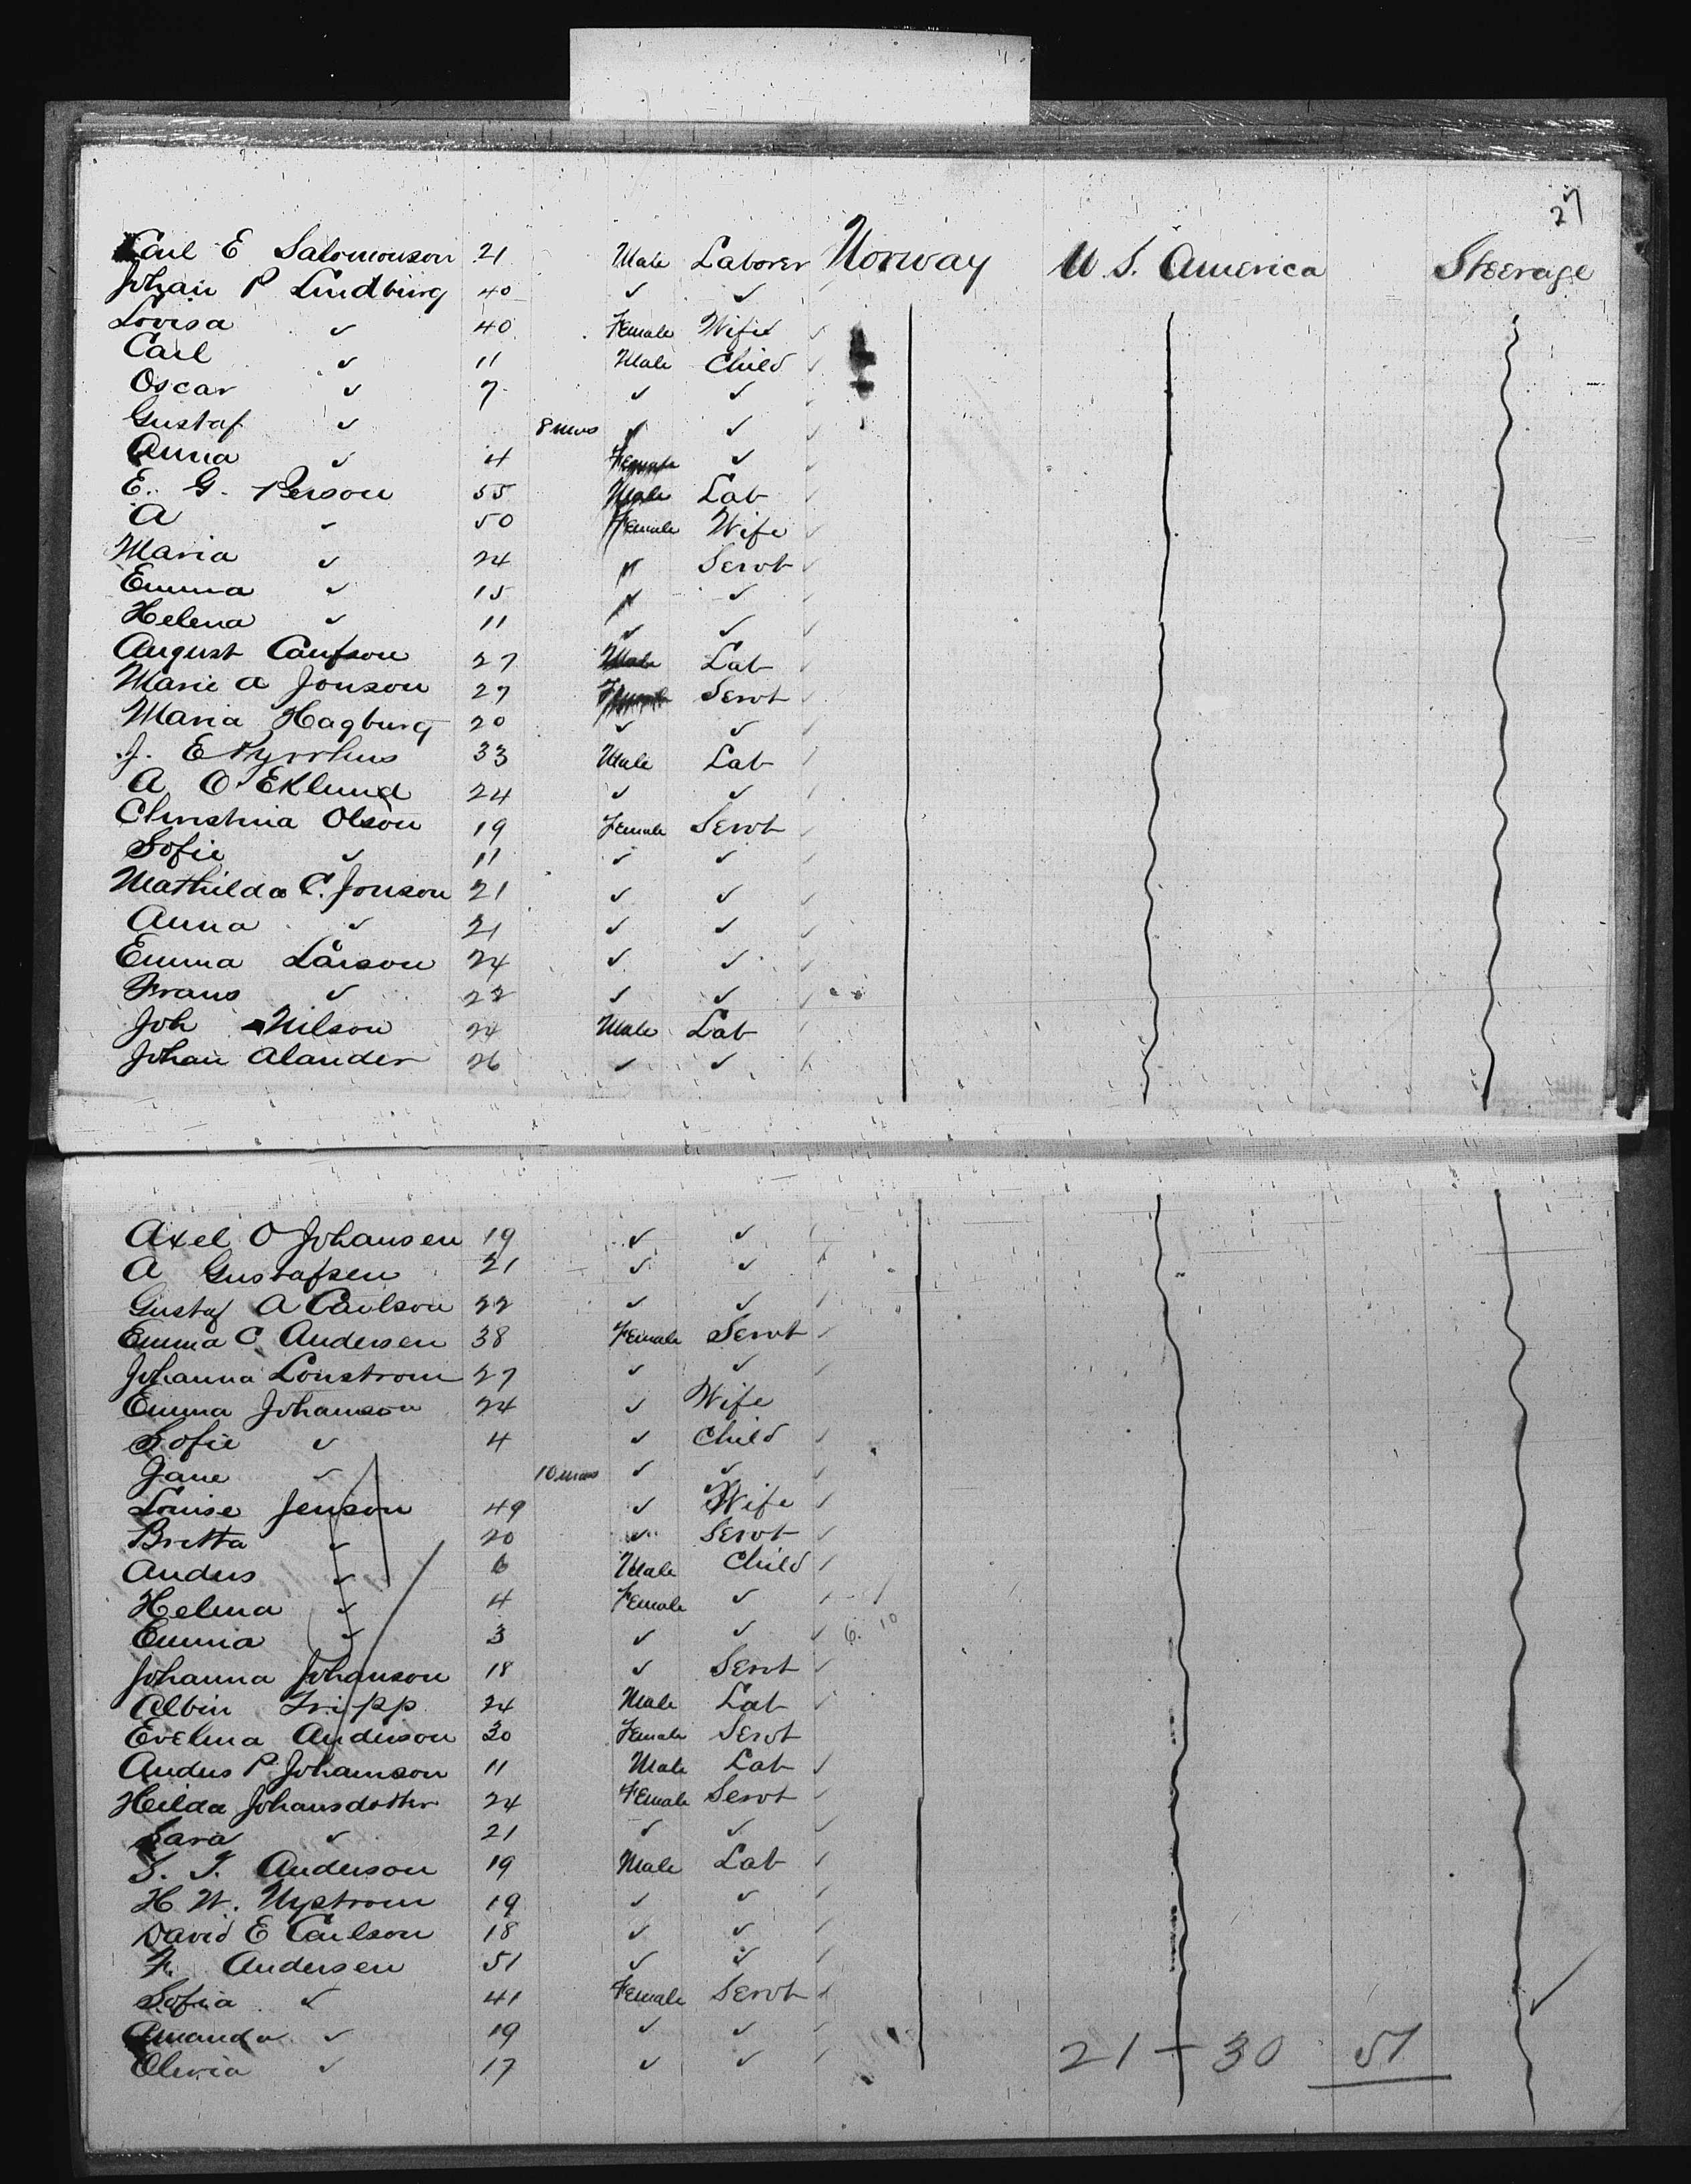 27
Carl E Salomonson 21 Male Laborer Norway U S. America Steerage
Johan P Lindburg 40 ✓ ✓
Lovisa ✓ 40 Female Wife ✓
Carl ✓ 11 Male Child ✓
Oscar ✓ 7 ✓ ✓
Gustaf ✓ 8 mos ✓ ✓
Anna ✓ 4 Female ✓
E. G. Person 55 Male Lab
A ✓ 50 Female Wife
Maria ✓ 24 " Servt
Emma ✓ 15 " ✓
Helena ✓ 11 ✓ ✓
August 27 Male Lab
Marie A Jonson 27 Female Servt
Maria Hagburg 20 ✓ ✓
J. E Pyrrhus 33 Male Lab
A O Eklund 24 ✓ ✓
Christina Olson 19 Female Servt
Sofie ✓ 11 ✓ ✓
Mathilda C. Jonson 21 ✓ ✓
Anna ✓ 21 ✓ ✓
Emma Larson 24 ✓ ✓
Frans ✓ 22 ✓ ✓
Joh Nilson 24 Male Lab
Johan Alander 26 ✓ ✓
Axel O Johansen 19 ✓ ✓
A Gustafsen 21 ✓ ✓
Gustaf A Carlson 22 ✓ ✓
Emma C. Andersen 38 Female Servt
Johanna Lonstrom 27 ✓ ✓
Emma Johanson 24 ✓ Wife
Sofie ✓ 4 ✓ Child
Jane ✓ 10 mos ✓ ✓
Louise Jenson 49 ✓ Wife
Britta ✓ 20 ✓ Servt
Anders ✓ 6 Male Child
Helma ✓ 4 Female ✓
Emma ✓ 3 ✓ ✓ 6. 10
Johanna Johanson 18 ✓ Servt
Albin Tripp 24 Male Lab
Evelina Anderson 30 Female Servt
Anders P. Johanson 11 Male Lab
Hilda Johansdotter 24 Female Servt
Sara ✓ 21 ✓ ✓
S. J. Anderson 19 Male Lab
H W. Nystrom 19 ✓ ✓
David E Carlson 18 ✓ ✓
F. Andersen 51 ✓ ✓
Sofia ✓ 41 Female Servt
Amanda ✓ 19 ✓ ✓
Olivia ✓ 17 ✓ ✓
21 + 30 51